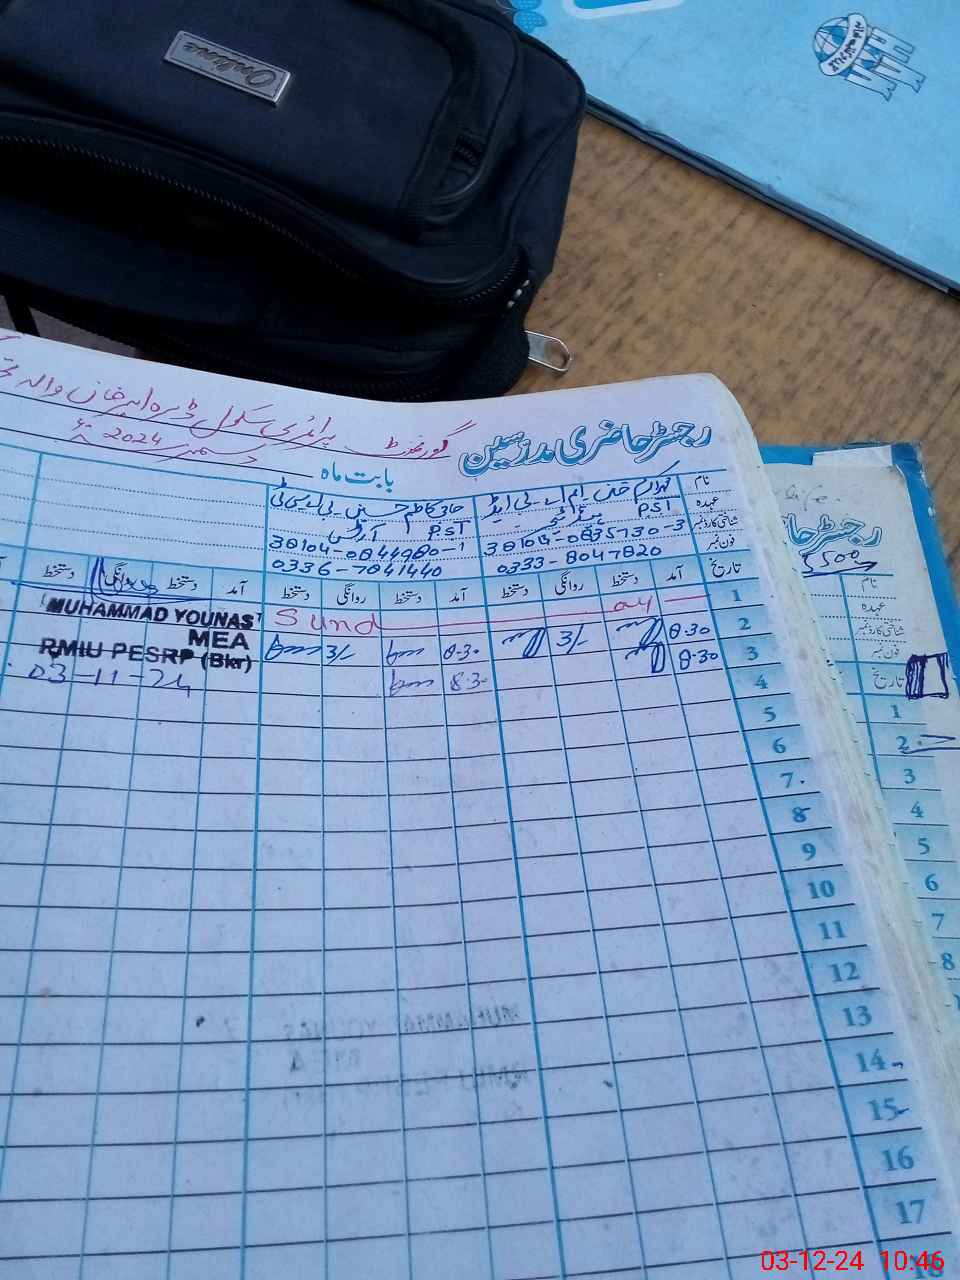 Online
رجسٹر حاضری مدرسین
گورنمنٹ پرائمری سکول ڈیرہ امیر خان والہ
بابت ماہ دسمبر 2024ء
نام
ایم اے بی ایڈ
بی اے سی ٹی
عہدہ
PST
PST
شناختی کارڈ نمبر
38104-0944980-1
فون نمبر
0333-8047820
0336-7841440
تاریخ
آمد دستخط روانگی دستخط آمد دستخط روانگی دستخط آمد دستخط
1 Sunday
2 8.30 8.30
3 8.30 8.30
4
5
6
7
8
9
10
11
12
13
14
15
16
17
MUHAMMAD YOUNAS
MEA
RMIU PESRP (Bkr)
03-11-24
رجسٹر حا
5500
نام
عہدہ
شناختی کارڈ نمبر
فون نمبر
تاریخ
1
2
3
4
5
6
7
8
03-12-24 10:46